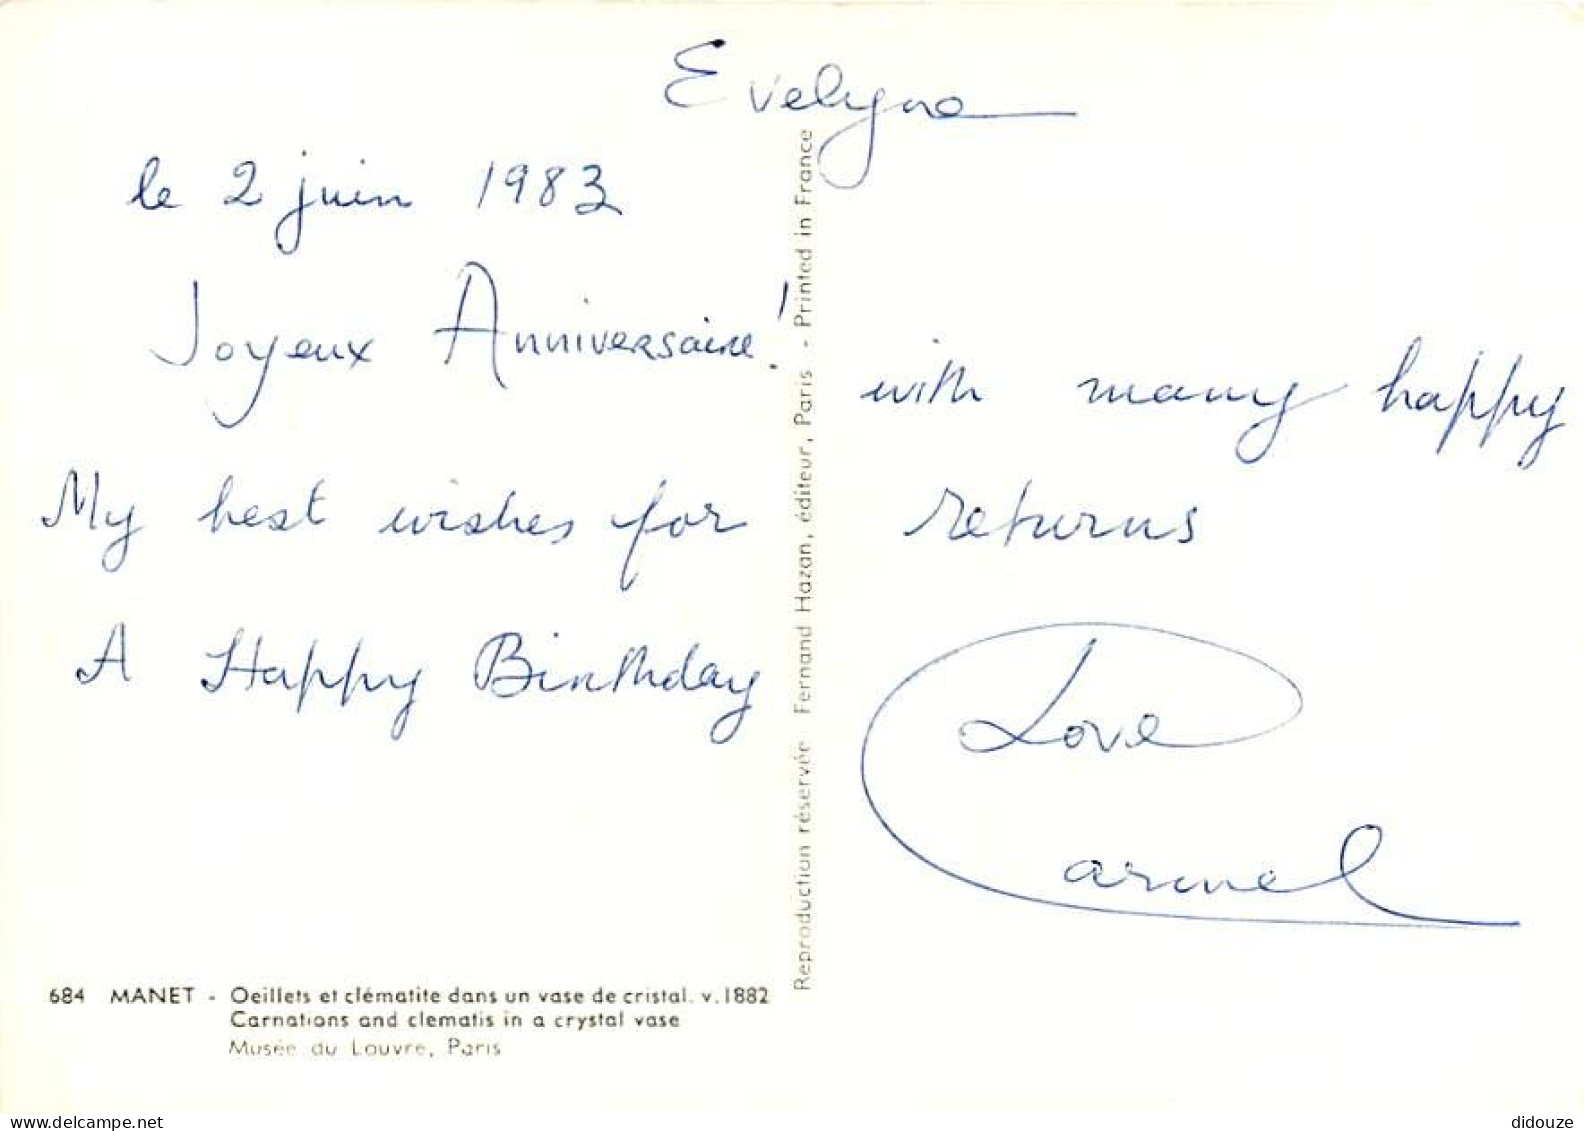 Evelyne
le 2 juin 1983
Joyeux Anniversaire!
My best wishes for
A Happy Birthday
with many happy
returns
Love
Carmel
684 MANET - Oeillets et clématite dans un vase de cristal. v.1882
Carnations and clematis in a crystal vase
Musée du Louvre, Paris
Reproduction réservée Fernand Hazan, éditeur, Paris - Printed in France
www.delcampe.net
didouze